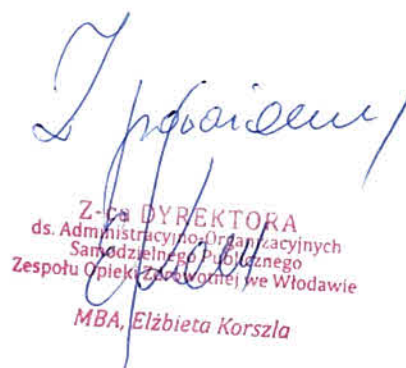 Z poważaniem,
Z-ca DYREKTORA
ds. Administracyjno-Organizacyjnych
Samodzielnego Publicznego
Zespołu Opieki Zdrowotnej we Włodawie
MBA, Elżbieta Korszla